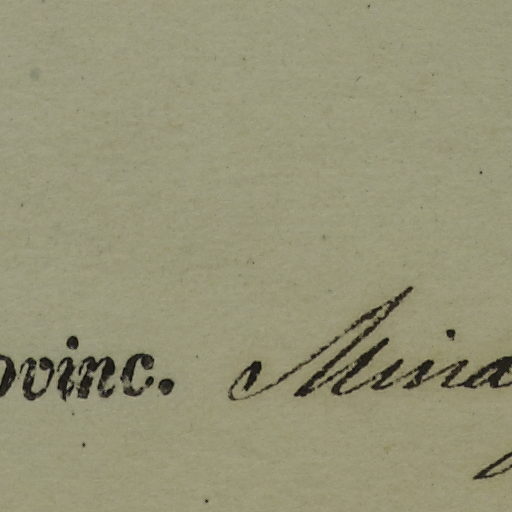 ovinc. Mina